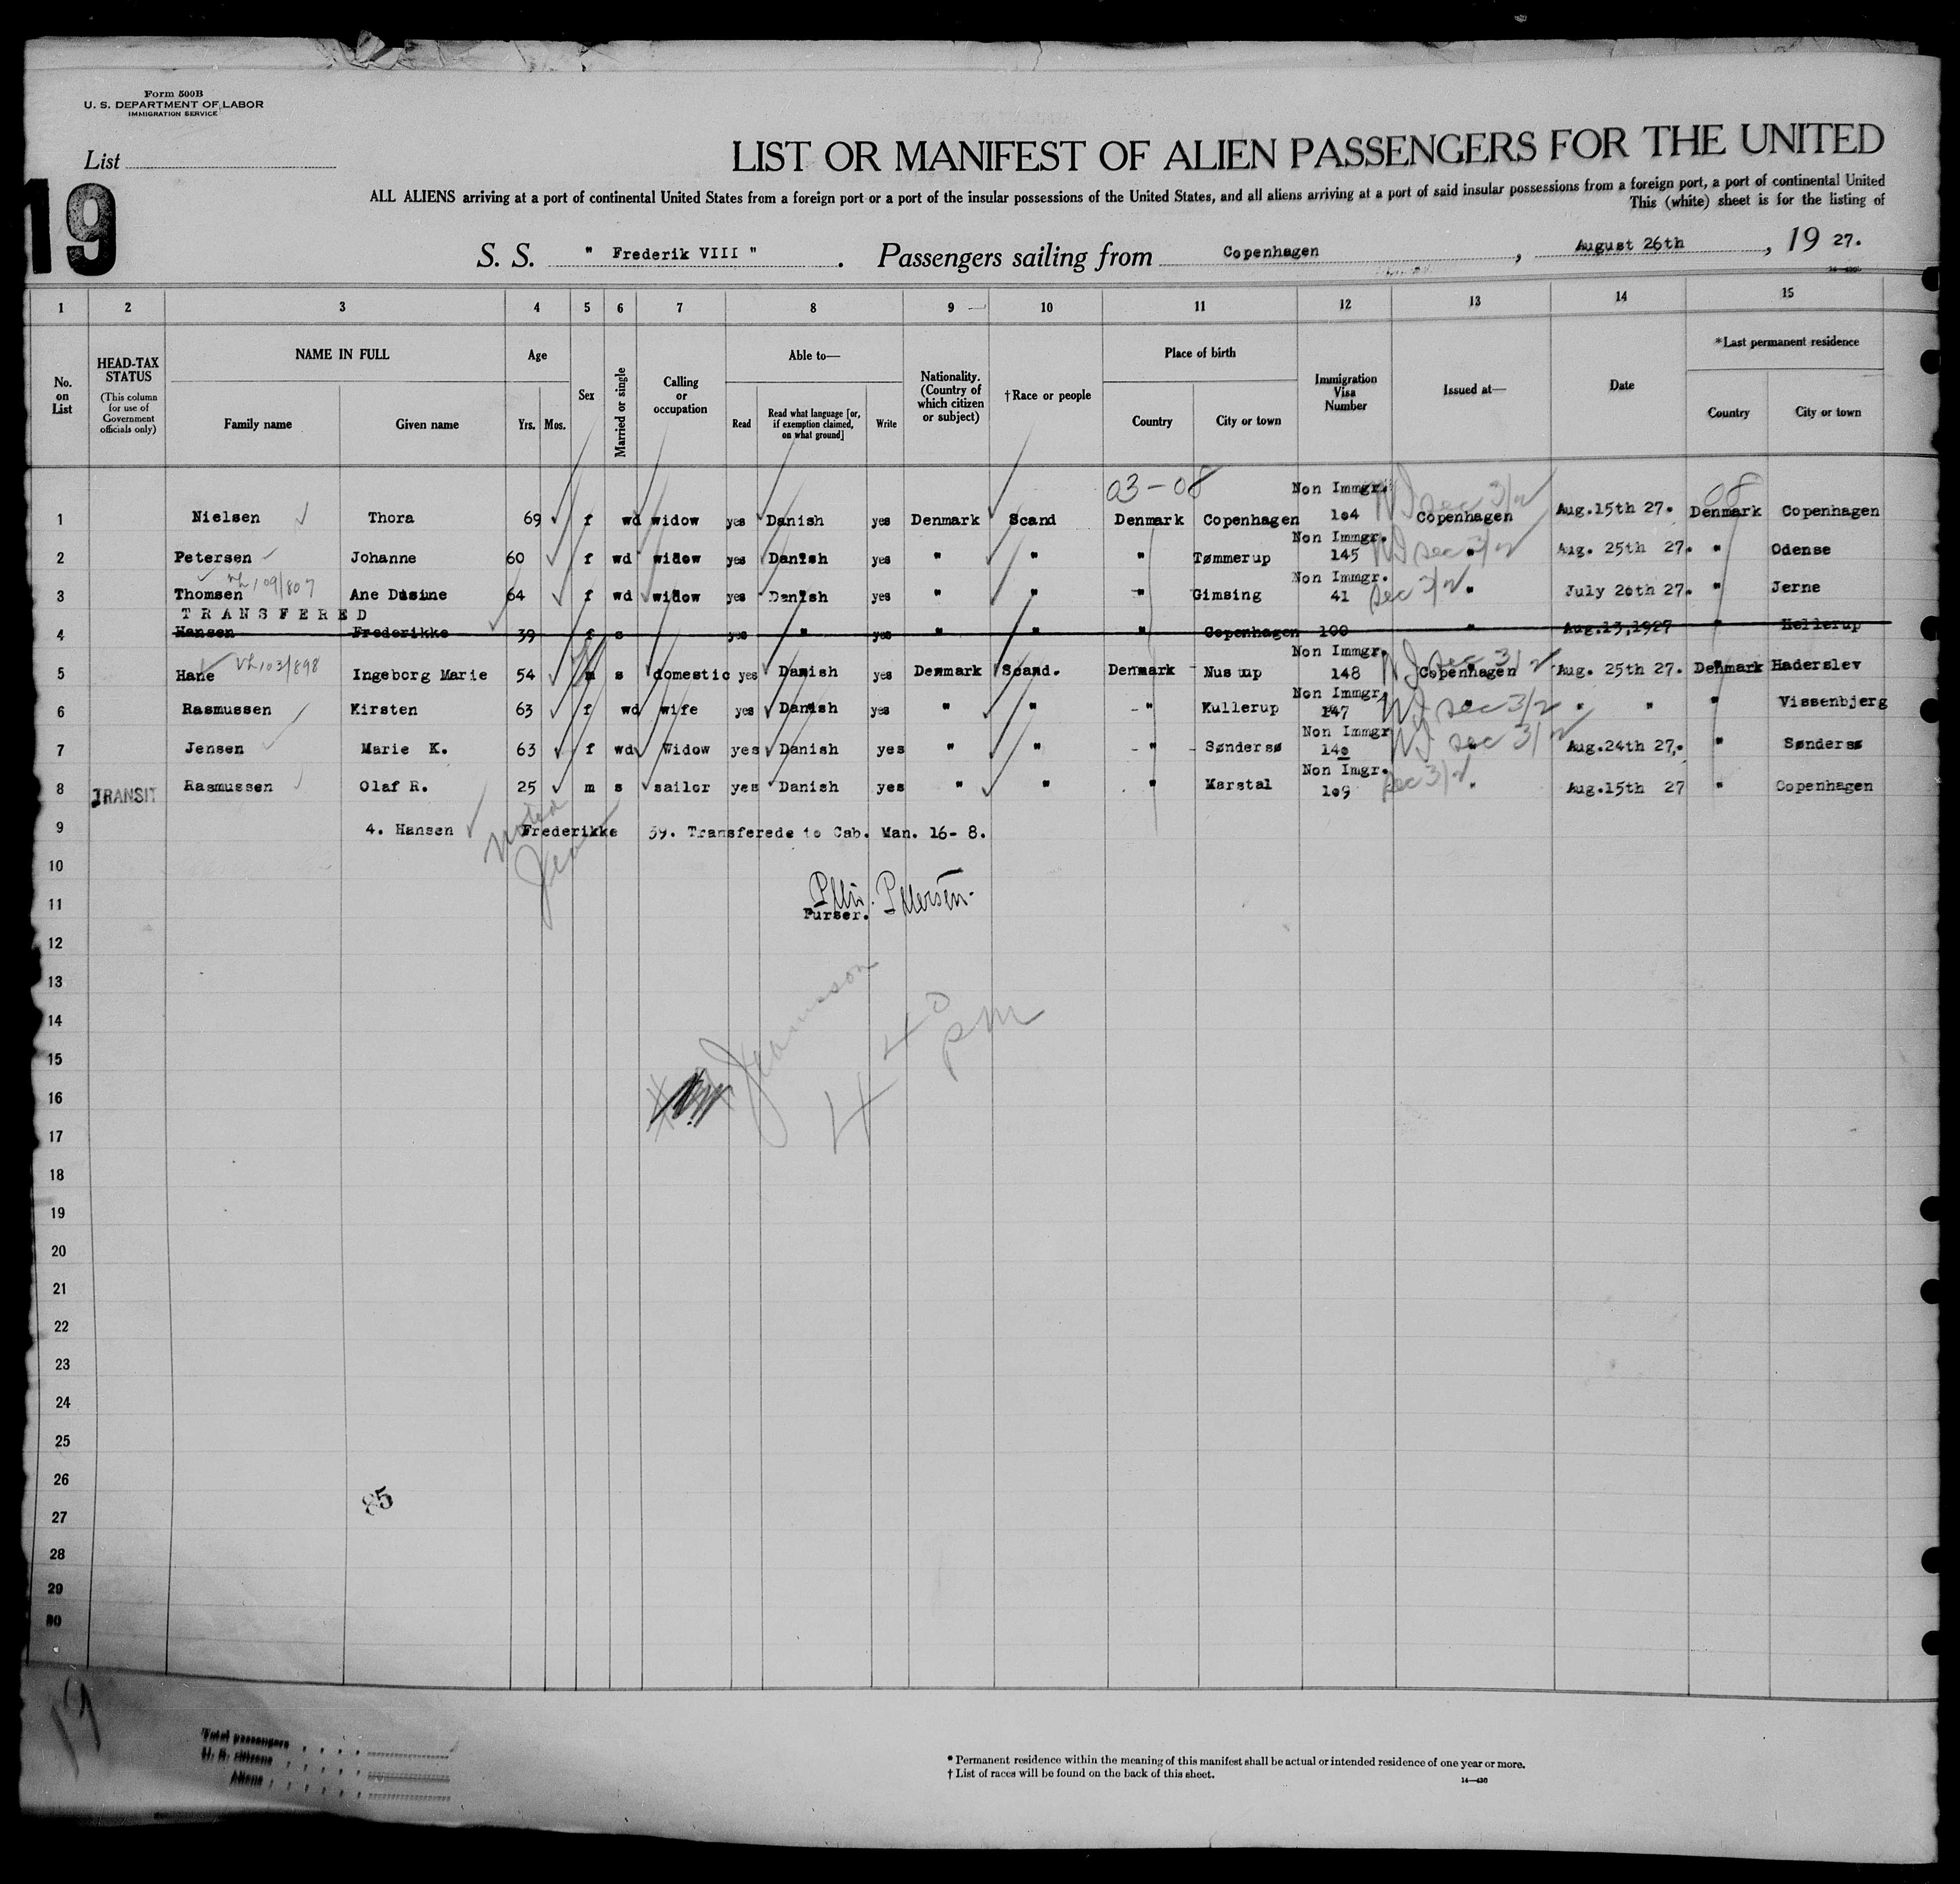 Form 500B
U. S. DEPARTMENT OF LABOR
IMMIGRATION SERVICE
List
19
LIST OR MANIFEST OF ALIEN PASSENGERS FOR THE UNITED
ALL ALIENS arriving at a port of continental United States from a foreign port or a port of the insular possessions of the United States, and all aliens arriving at a port of said insular possessions from a foreign port, a port of continental United
This (white) sheet is for the listing of
S. S. " Frederik VIII " . Passengers sailing from Copenhagen , August 26th , 19 27.
1 2 3 4 5 6 7 8 9 10 11 12 13 14 15
No. on List
HEAD-TAX STATUS
(This column for use of Government officials only)
NAME IN FULL
Family name Given name
Age
Yrs. Mos.
Sex
Married or single
Calling or occupation
Able to—
Read
Read what language [or, if exemption claimed, on what ground]
Write
Nationality. (Country of which citizen or subject)
†Race or people
Place of birth
Country City or town
Immigration Visa Number
Issued at—
Date
*Last permanent residence
Country City or town
03-08 08
Non Immgr.
1 Nielsen Thora 69 f wd widow yes Danish yes Denmark Scand Denmark Copenhagen 104 Copenhagen Aug.15th 27. Denmark Copenhagen
sec 3/2
Non Immgr.
2 Petersen Johanne 60 f wd widow yes Danish yes " " " Tømmerup 145 " Aug. 25th 27. " Odense
sec 3/2
109/807
Non Immgr.
3 Thomsen Ane Dusine 64 f wd widow yes Danish yes " " " Gimsing 41 " July 20th 27. " Jerne
sec 3/2
TRANSFERED
4 Hansen Frederikke 39 f s yes " yes " " " Copenhagen 100 " Aug.13,1927 " Hellerup
103/898
Non Immgr.
5 Hane Ingeborg Marie 54 m s domestic yes Danish yes Denmark Scand. Denmark Nustrup 148 Copenhagen Aug. 25th 27. Denmark Haderslev
sec 3/2
Non Immgr.
6 Rasmussen Kirsten 63 f wd wife yes Danish yes " " " Kullerup 147 " " " " Vissenbjerg
sec 3/2
Non Immgr
7 Jensen Marie K. 63 f wd Widow yes Danish yes " " " Søndersø 140 " Aug.24th 27. " Søndersø
sec 3/2
Non Imgr.
8 TRANSIT Rasmussen Olaf R. 25 m s sailor yes Danish yes " " " Marstal 109 " Aug.15th 27 " Copenhagen
sec 3/2
9 4. Hansen Frederikke 39. Transferede to Cab. Man. 16- 8.
noted
10
11
Petersen
Purser.
12
13
14
4 40 pm
15
16
17
18
19
20
21
22
23
24
25
26
85
27
28
29
30
19
Total passengers
U. S. citizens
Aliens
* Permanent residence within the meaning of this manifest shall be actual or intended residence of one year or more.
† List of races will be found on the back of this sheet.
14—430